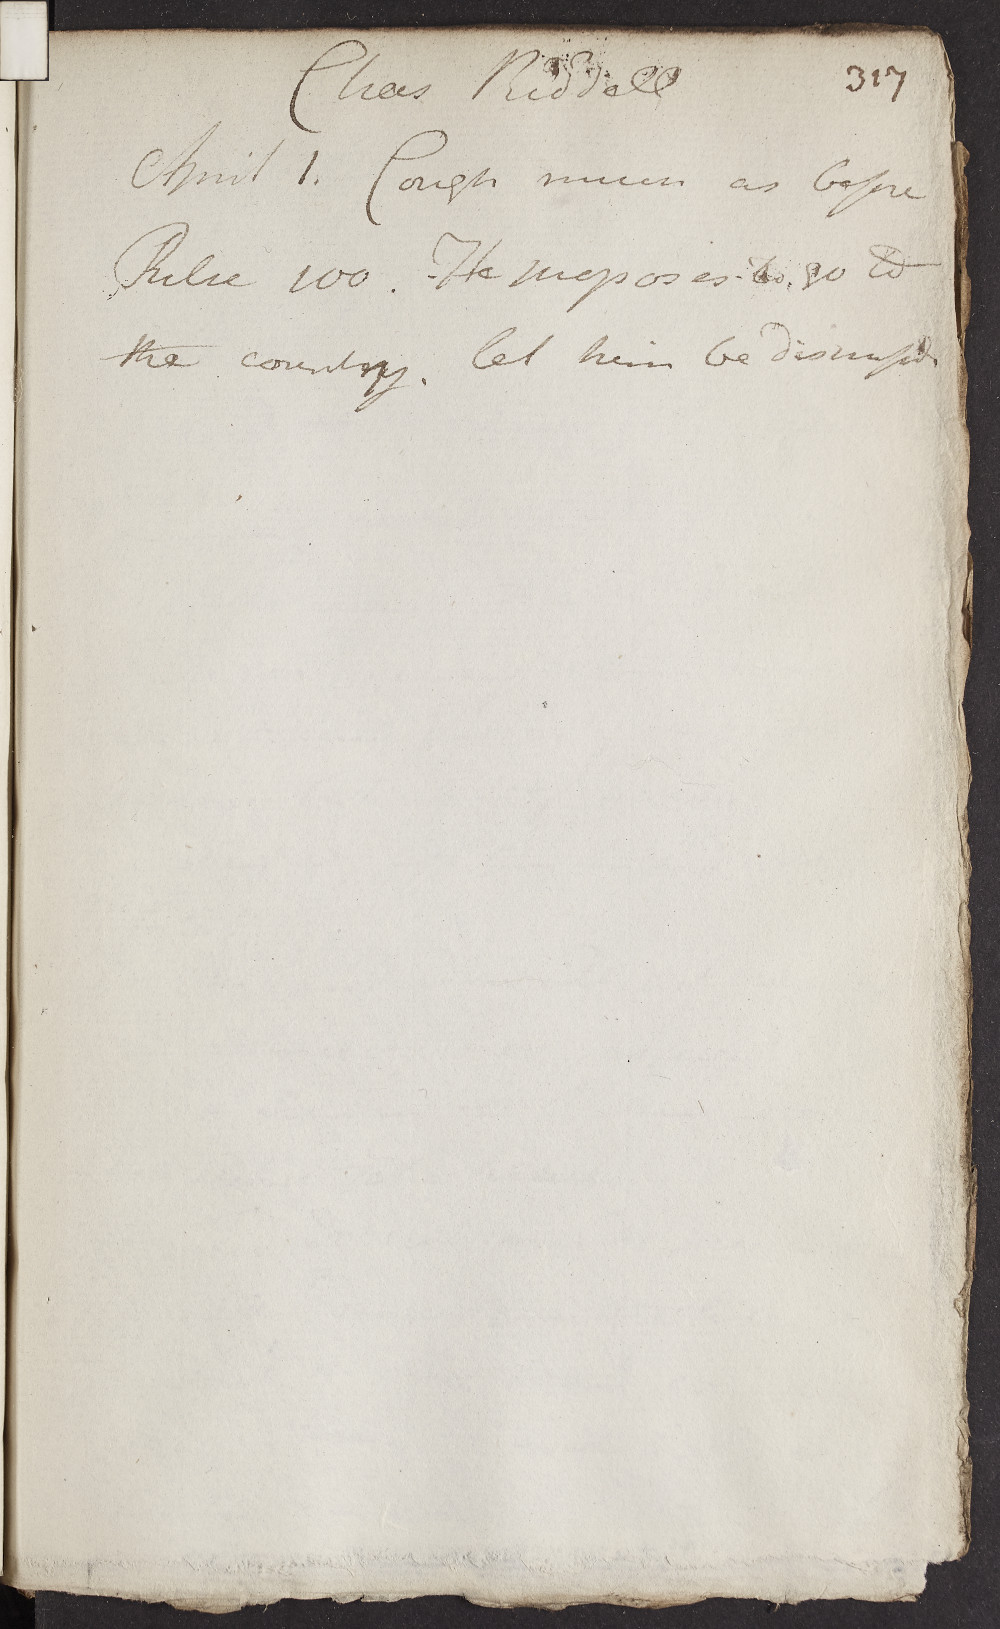 Chas Riddell 317
April 1. Cough much as before
Pulse 100. He proposes to go to
the country. let him be dismissd.